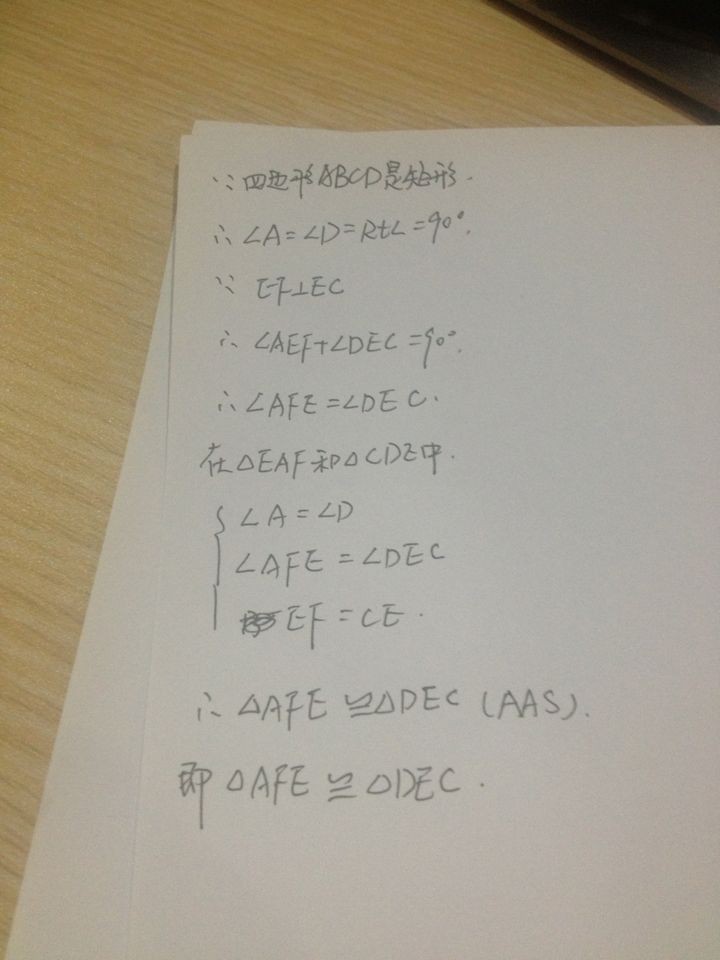 ∵四边形ABCD是矩形.
∴∠A=∠D=Rt∠=90°.
∵ EF⊥EC
∴∠AEF+∠DEC=90°.
∴∠AFE=∠DEC.
在△EAF和△CDE中.
∠A=∠D
∠AFE=∠DEC
EF=CE.
∴△AFE≌△DEC(AAS).
即△AFE≌△DEC.